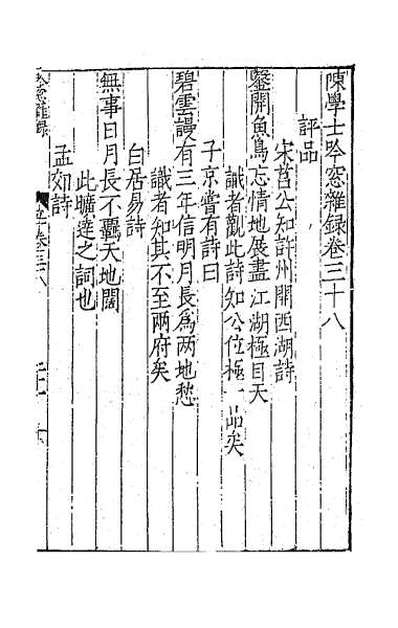 陳學士吟窓雜録卷三十八
評品
宋莒公知許州開西湖詩
鑿開魚鳥忘情地展盡江湖極目天
識者觀此詩知公位極一品矣
子京嘗有詩曰
碧雲謾有三年信明月長爲两地愁
識者知其不至兩府矣
白居易詩
無事日月長不羈天地闊
此曠達之詞也
孟郊詩